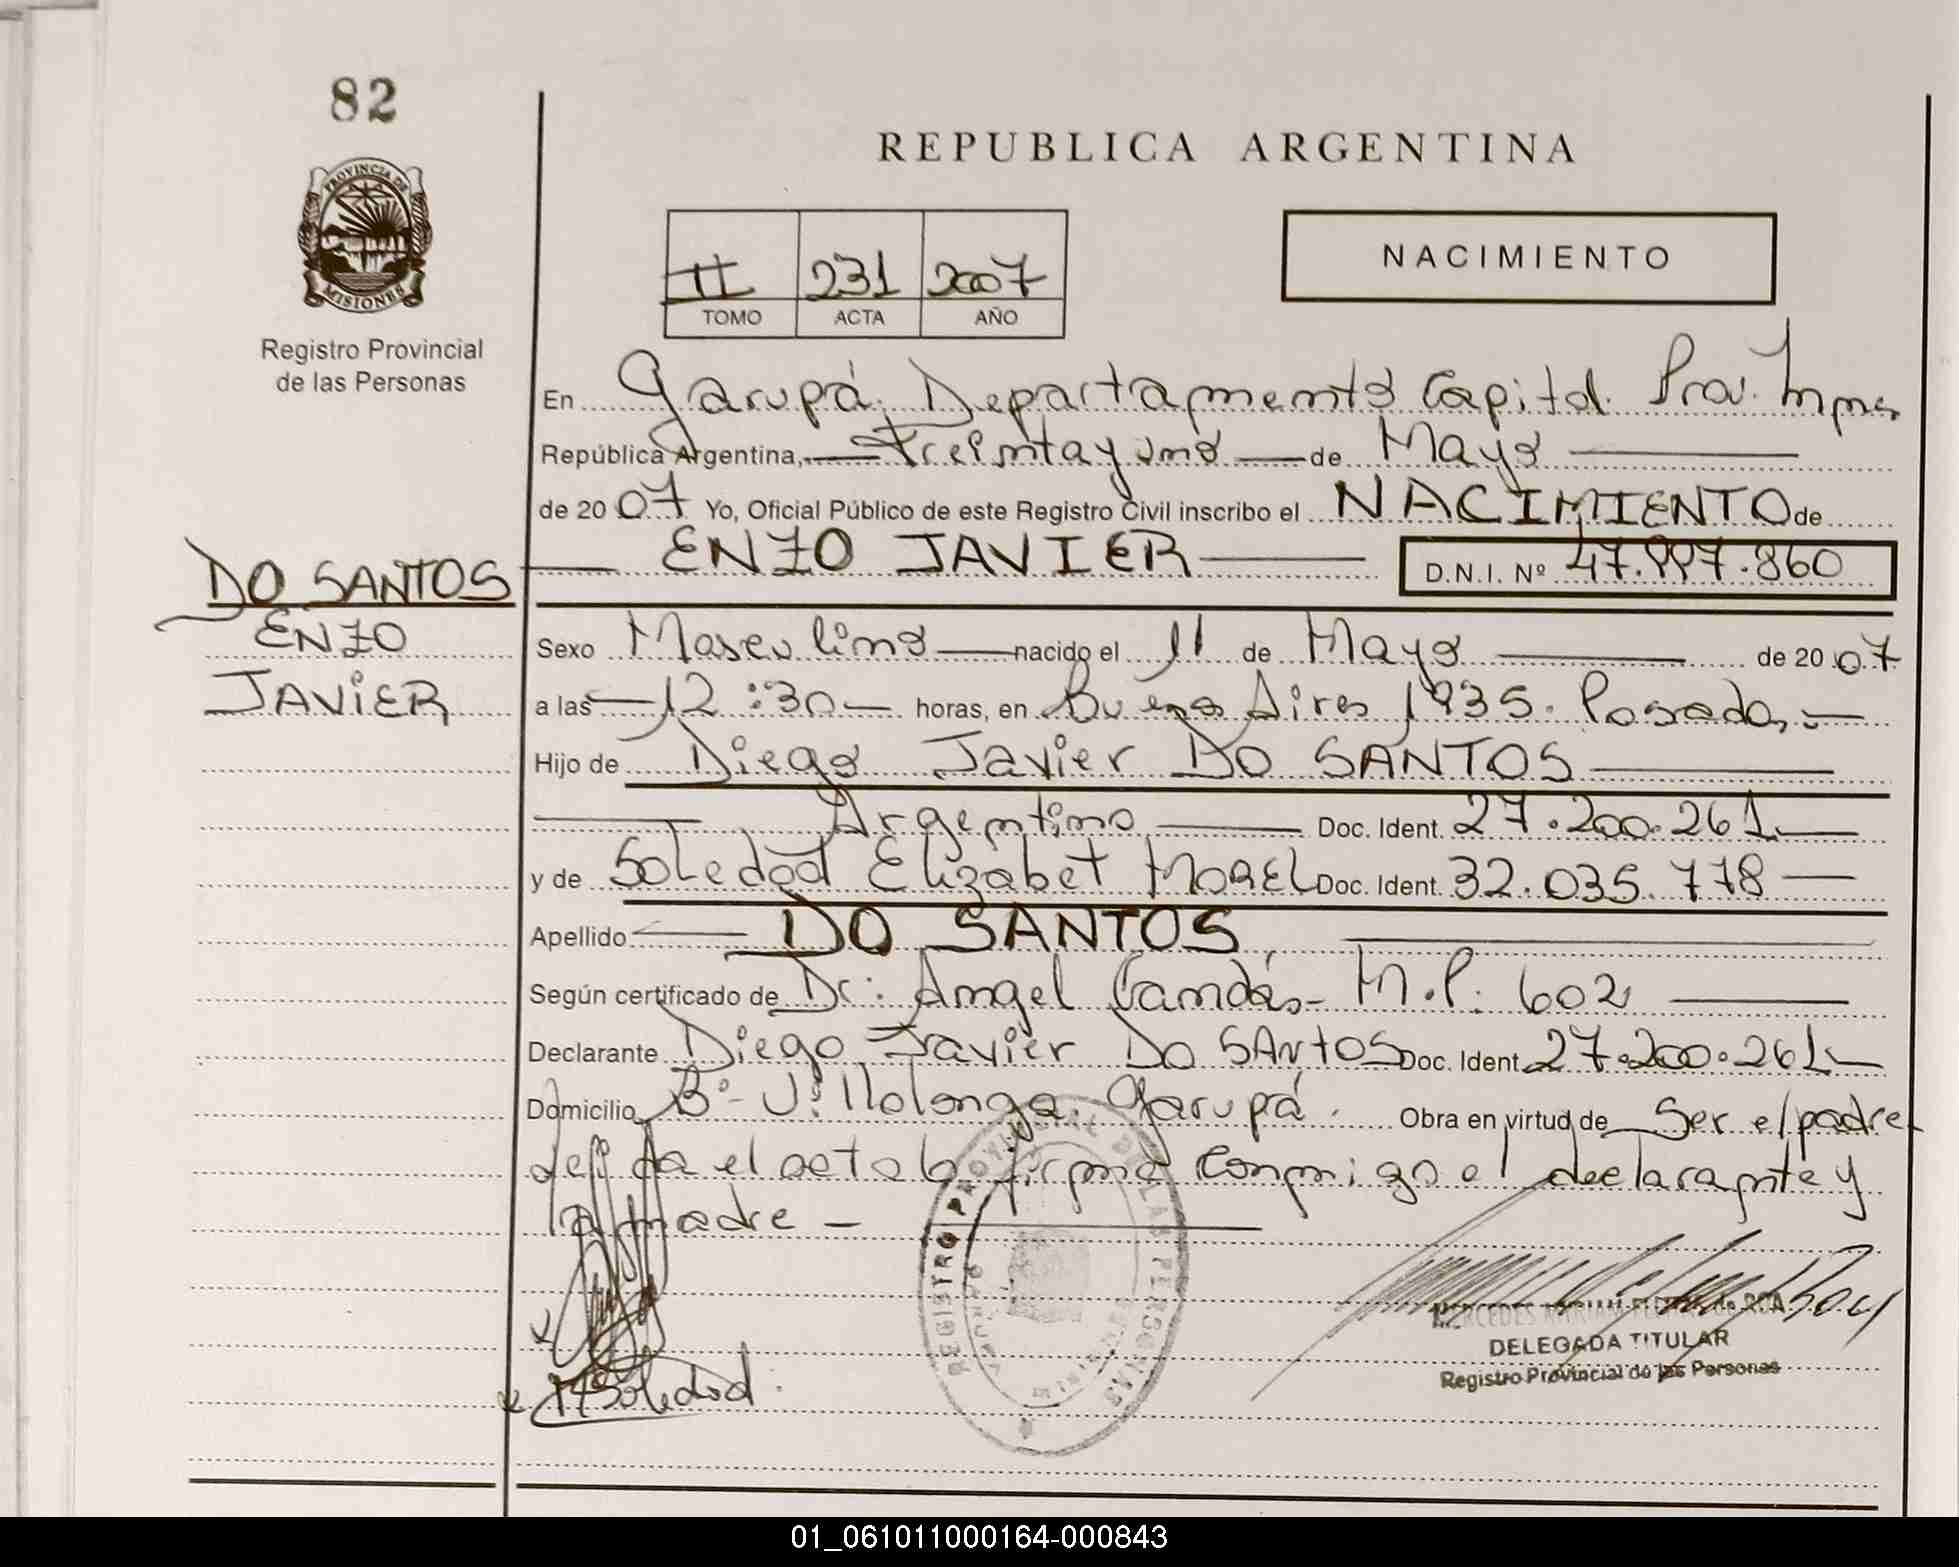 82
REPUBLICA ARGENTINA
PROVINCIA DE
MISIONES
Registro Provincial
de las Personas
II 231 2007
TOMO ACTA AÑO
NACIMIENTO
En Garupá. Departamento Capital. Prov. Mnes
República Argentina, Treinta y uno de Mayo
de 2007 Yo, Oficial Público de este Registro Civil inscribo el NACIMIENTO de
ENZO JAVIER D.N.I. Nº 47.997.860
DO SANTOS
ENZO
JAVIER
Sexo Masculino nacido el 11 de Mayo de 2007
a las 12:30 horas, en Buenos Aires 1935. Posadas
Hijo de Diego Javier DO SANTOS
Argentino Doc. Ident. 27.200.261
y de Soledad Elizabet MOREL Doc. Ident. 32.035.778
Apellido DO SANTOS
Según certificado de Dr: Angel M.P. 602
Declarante Diego Javier Do SANtOS Doc. Ident. 27.200.261
Domicilio Bº- Villalonga. Garupá. Obra en virtud de Ser el padre
el acta la firma conmigo el declarante y
la madre -
REGISTRO PROVINCIAL DE LAS PERSONAS
DELEGADA TITULAR
Registro Provincial de las Personas
MSoledad.
01_061011000164-000843